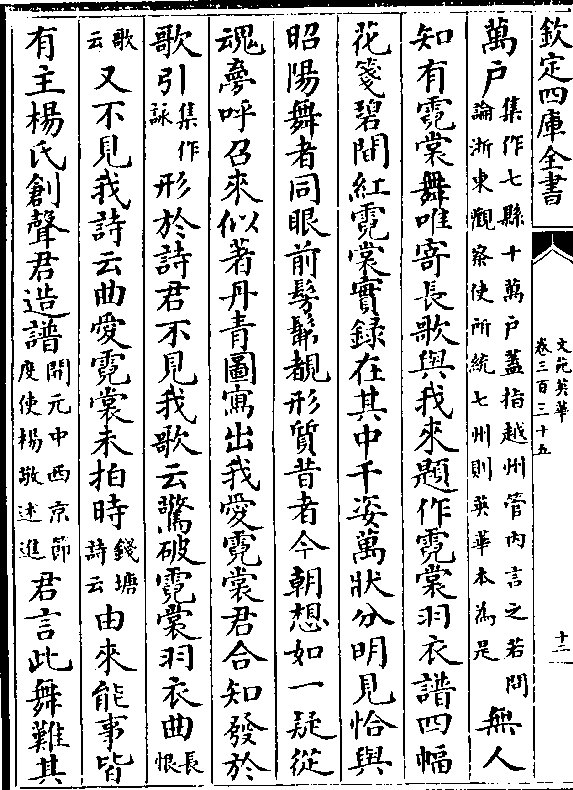 欽定四庫全書
文苑英華
卷三百三十五
十二
萬户集作七縣十萬户蓋指越州管内言之若問論浙東觀察使所統七州則英華本為是無人
知有霓裳舞唯寄長歌與我來題作霓裳羽衣譜四幅
花箋碧間紅霓裳實録在其中千姿萬狀分明見恰與
昭陽舞者同眼前髣髴覩形質昔者今朝想如一疑從
魂夢呼召來似著丹青圖寫出我愛霓裳君合知發於
歌引集作詠形於詩君不見我歌云驚破霓裳羽衣曲長恨
歌云又不見我詩云曲愛霓裳未拍時錢塘詩云由來能事皆
有主楊氏創聲君造譜開元中西京節度使楊敬述進君言此舞難其